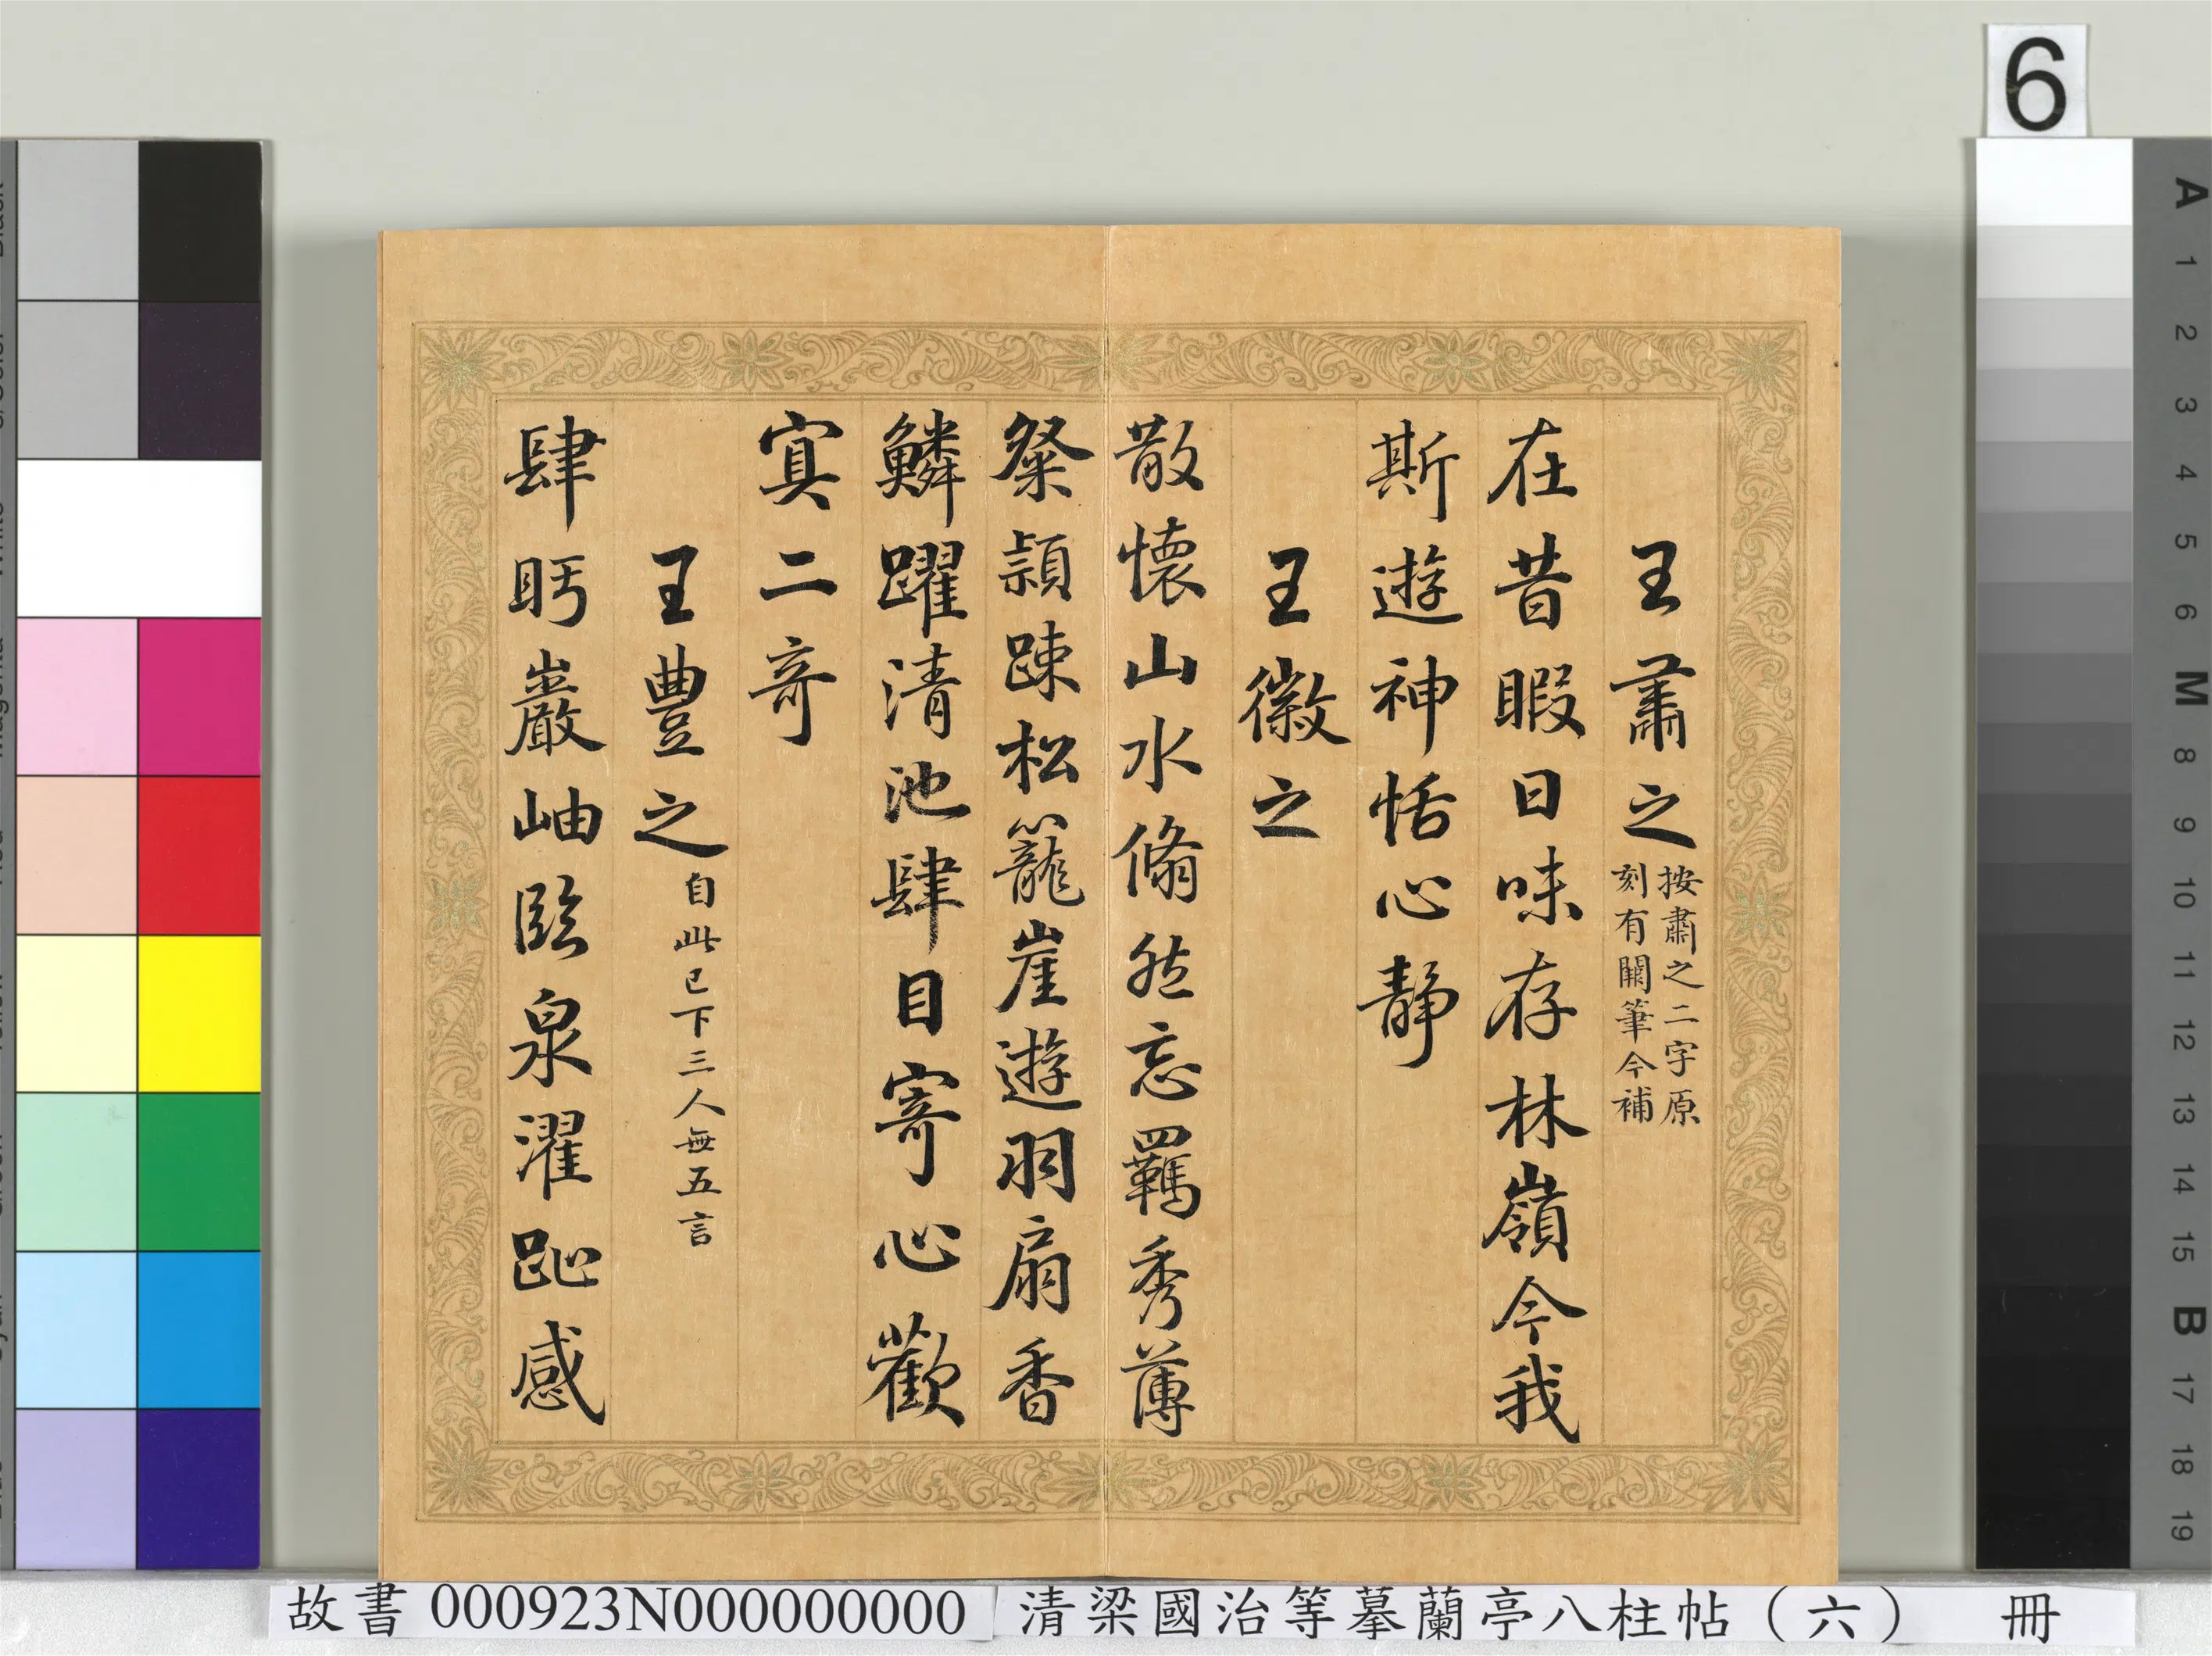 王肅之 按肅之二字原
刻有闕筆今補
在昔暇日味存林嶺今我
斯遊神恬心静
王徽之
散懷山水翛然忘羈秀薄
粲頴踈松籠崖遊羽扇香
鱗躍清池肆目寄心歡
寘二奇
王豊之 自此已下三人無五言
肆眄巖岫臨泉濯趾感
6
A 1 2 3 4 5 6 M 8 9 10 11 12 13 14 15 B 17 18 19
故書 000923N000000000 清梁國治等摹蘭亭八柱帖（六） 冊